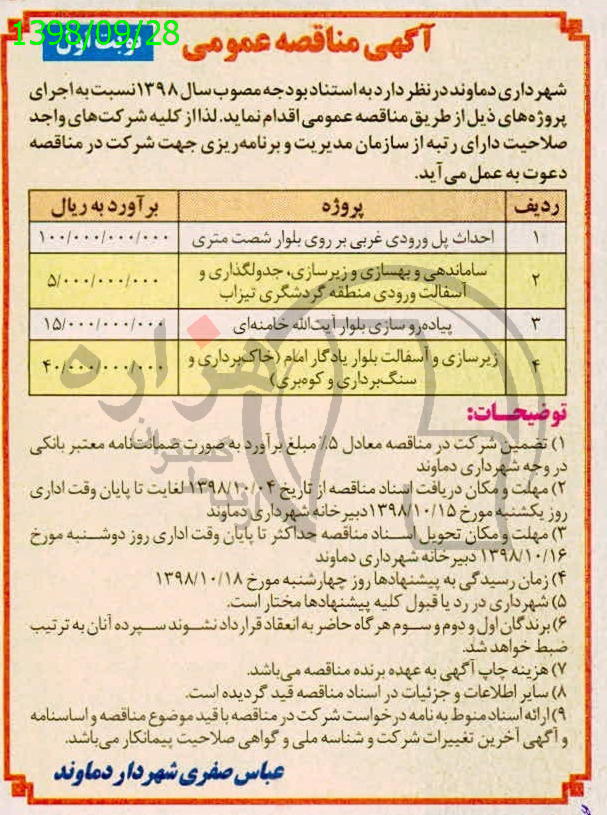 1398/09/28
آگهی مناقصه عمومی
نوبت اول
شهرداری دماوند در نظر دارد به استناد بودجه مصوب سال ۱۳۹۸ نسبت به اجرای
پروژه‌های ذیل از طریق مناقصه عمومی اقدام نماید. لذا از کلیه شرکت‌های واجد
صلاحیت دارای رتبه از سازمان مدیریت و برنامه‌ریزی جهت شرکت در مناقصه
دعوت به عمل می‌آید.
ردیف پروژه برآورد به ریال
۱ احداث پل ورودی غربی بر روی بلوار شصت متری ۱۰۰/۰۰۰/۰۰۰/۰۰۰
۲ ساماندهی و بهسازی و زیرسازی، جدولگذاری و
آسفالت ورودی منطقه گردشگری تیزاب ۵/۰۰۰/۰۰۰/۰۰۰
۳ پیاده‌رو سازی بلوار آیت‌الله خامنه‌ای ۱۵/۰۰۰/۰۰۰/۰۰۰
۴ زیرسازی و آسفالت بلوار یادگار امام (خاک‌برداری و
سنگ‌برداری و کوه‌بری) ۴۰/۰۰۰/۰۰۰/۰۰۰
توضیحـات:
۱) تضمین شرکت در مناقصه معادل ۵٪ مبلغ برآورد به صورت ضمانت‌نامه معتبر بانکی
در وجه شهرداری دماوند
۲) مهلت و مکان دریافت اسناد مناقصه از تاریخ ۱۳۹۸/۱۰/۰۴ لغایت تا پایان وقت اداری
روز یکشنبه مورخ ۱۳۹۸/۱۰/۱۵ دبیرخانه شهرداری دماوند
۳) مهلت و مکان تحویل اسـناد مناقصه حداکثر تا پایان وقت اداری روز دوشـنبه مورخ
۱۳۹۸/۱۰/۱۶ دبیرخانه شهرداری دماوند
۴) زمان رسیدگی به پیشنهادها روز چهارشنبه مورخ ۱۳۹۸/۱۰/۱۸
۵) شهرداری در رد یا قبول کلیه پیشنهادها مختار است.
۶) برندگان اول و دوم و سـوم هرگاه حاضر به انعقاد قرارداد نشـوند سـپرده آنان به ترتیب
ضبط خواهد شد.
۷) هزینه چاپ آگهی به عهده برنده مناقصه می‌باشد.
۸) سایر اطلاعات و جزئیات در اسناد مناقصه قید گردیده است.
۹) ارائه اسناد منوط به نامه درخواست شرکت در مناقصه با قید موضوع مناقصه و اساسنامه
و آگهی آخرین تغییرات شرکت و شناسه ملی و گواهی صلاحیت پیمانکار می‌باشد.
عباس صفری شهردار دماوند
هزاره